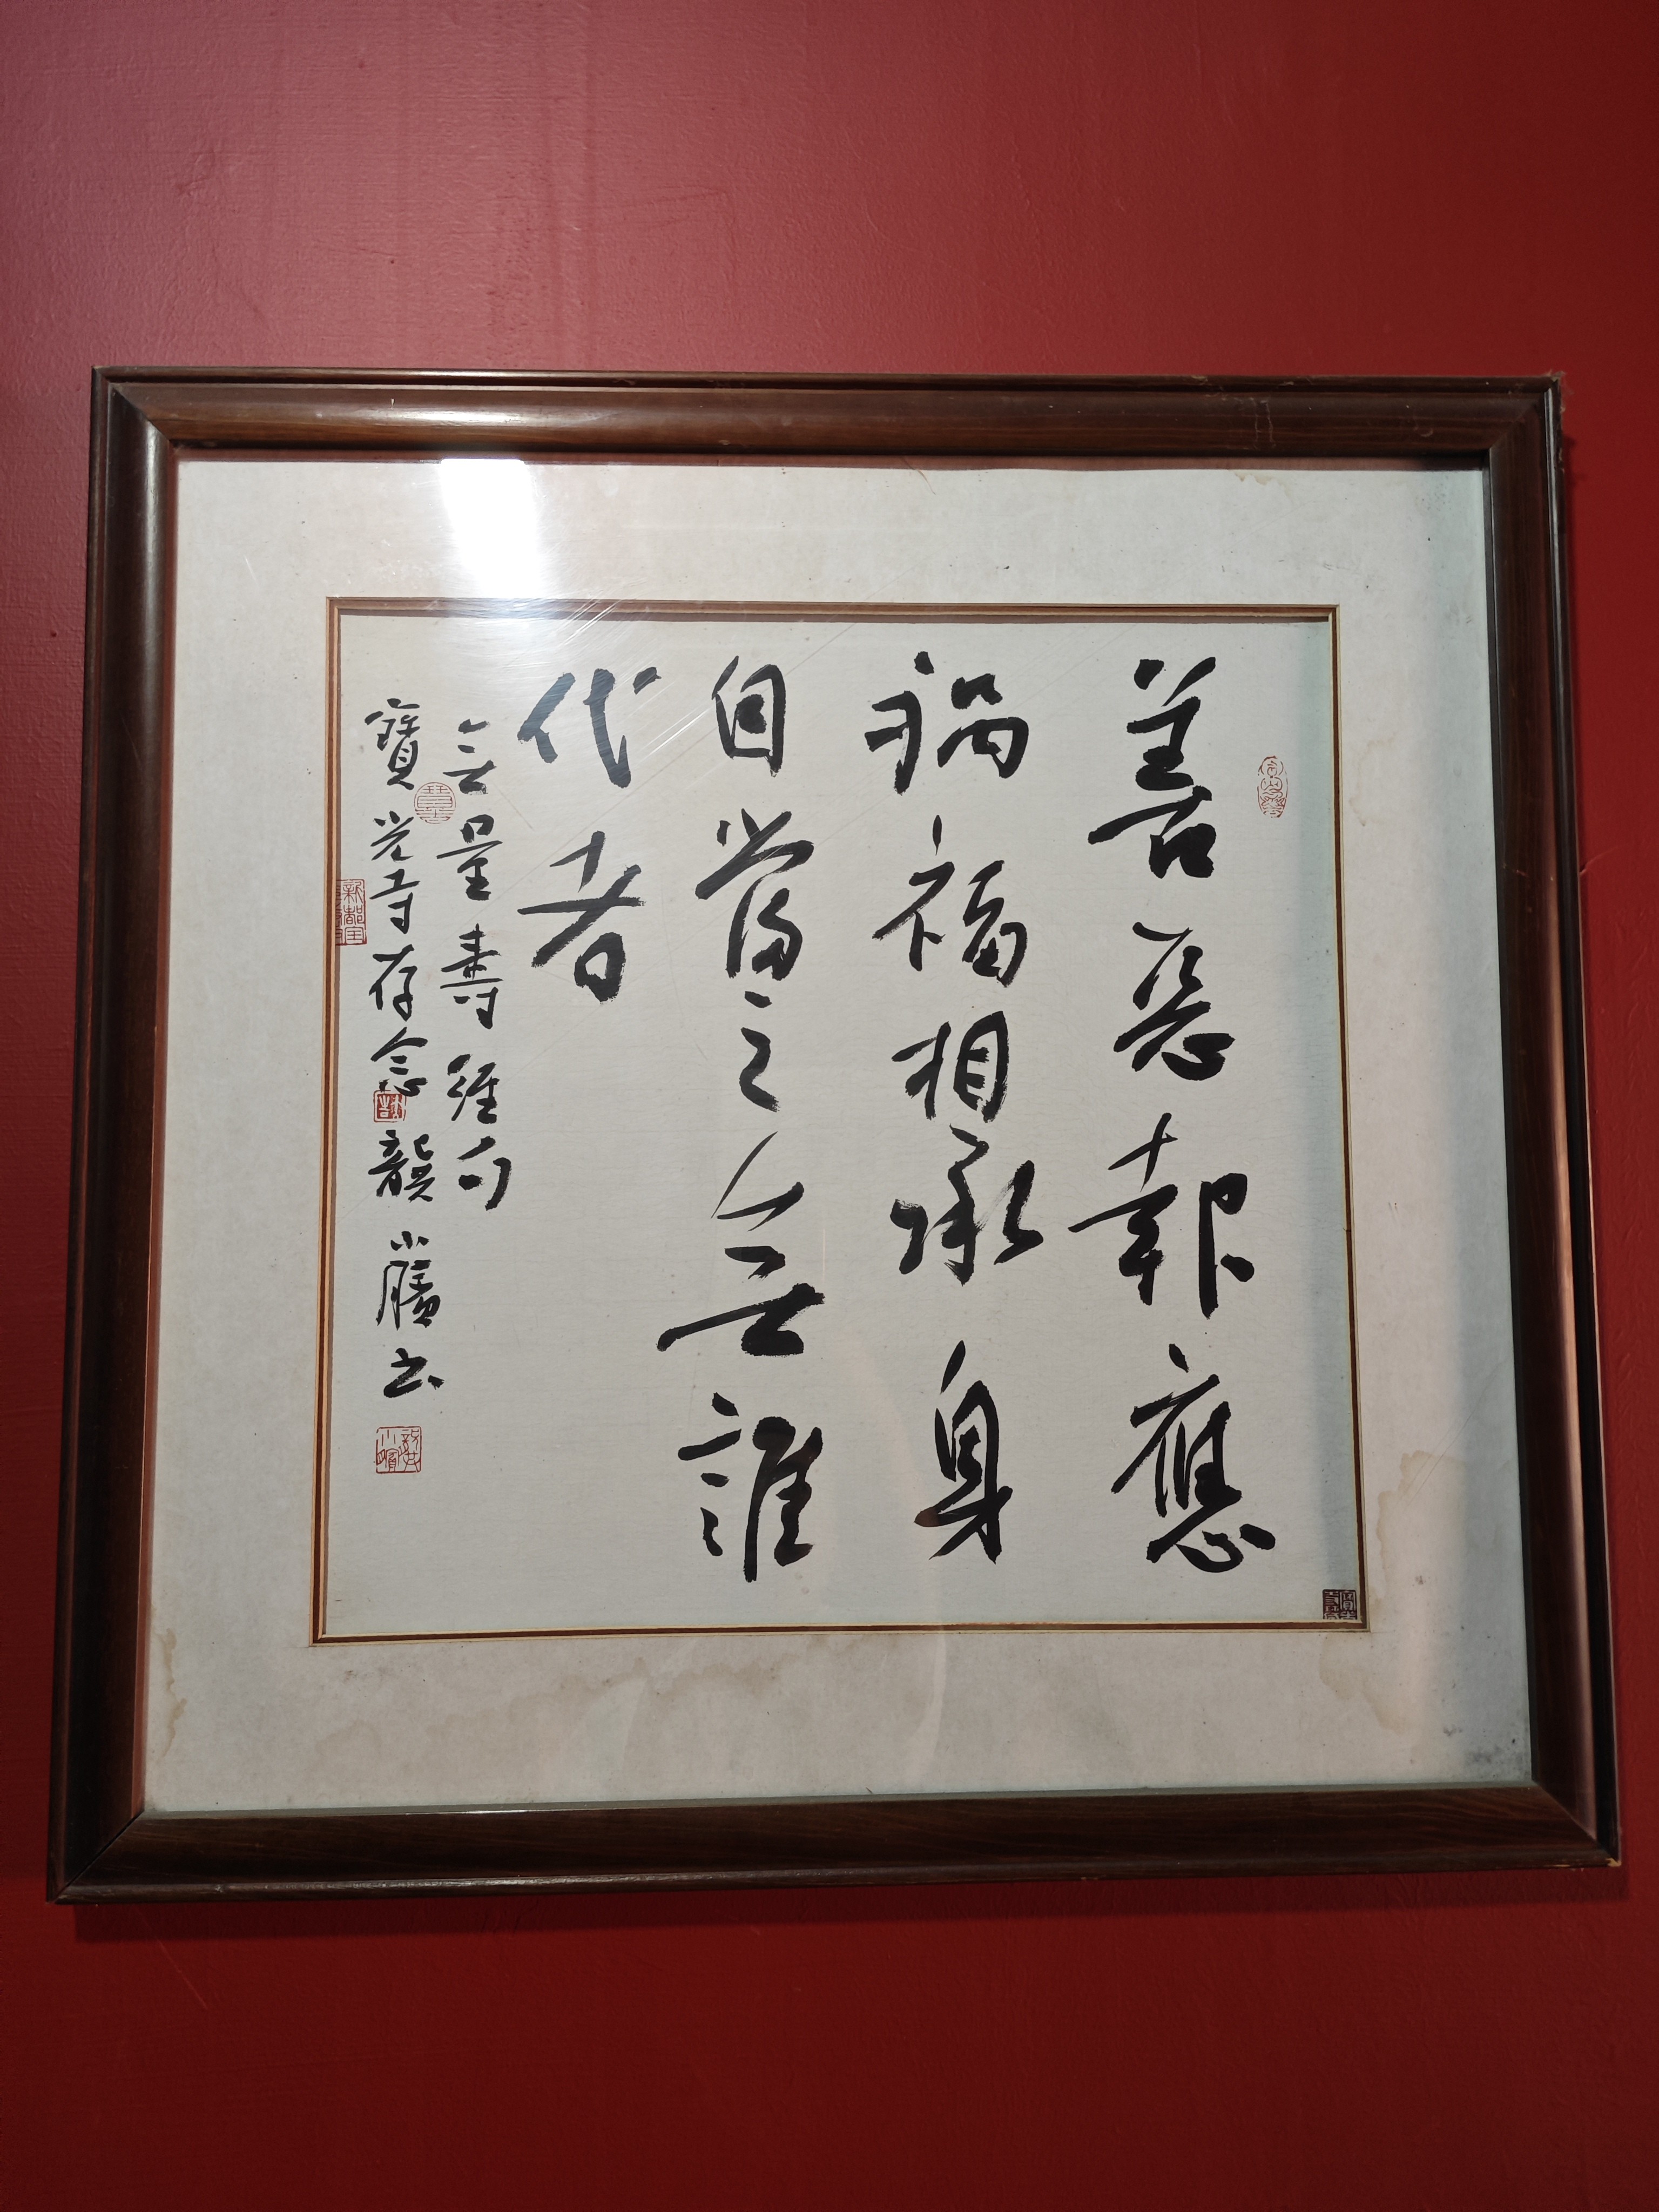 善惡報應
禍福相承身
自當之無誰
代者
無量壽經句
寶光寺存念 龔小膑书